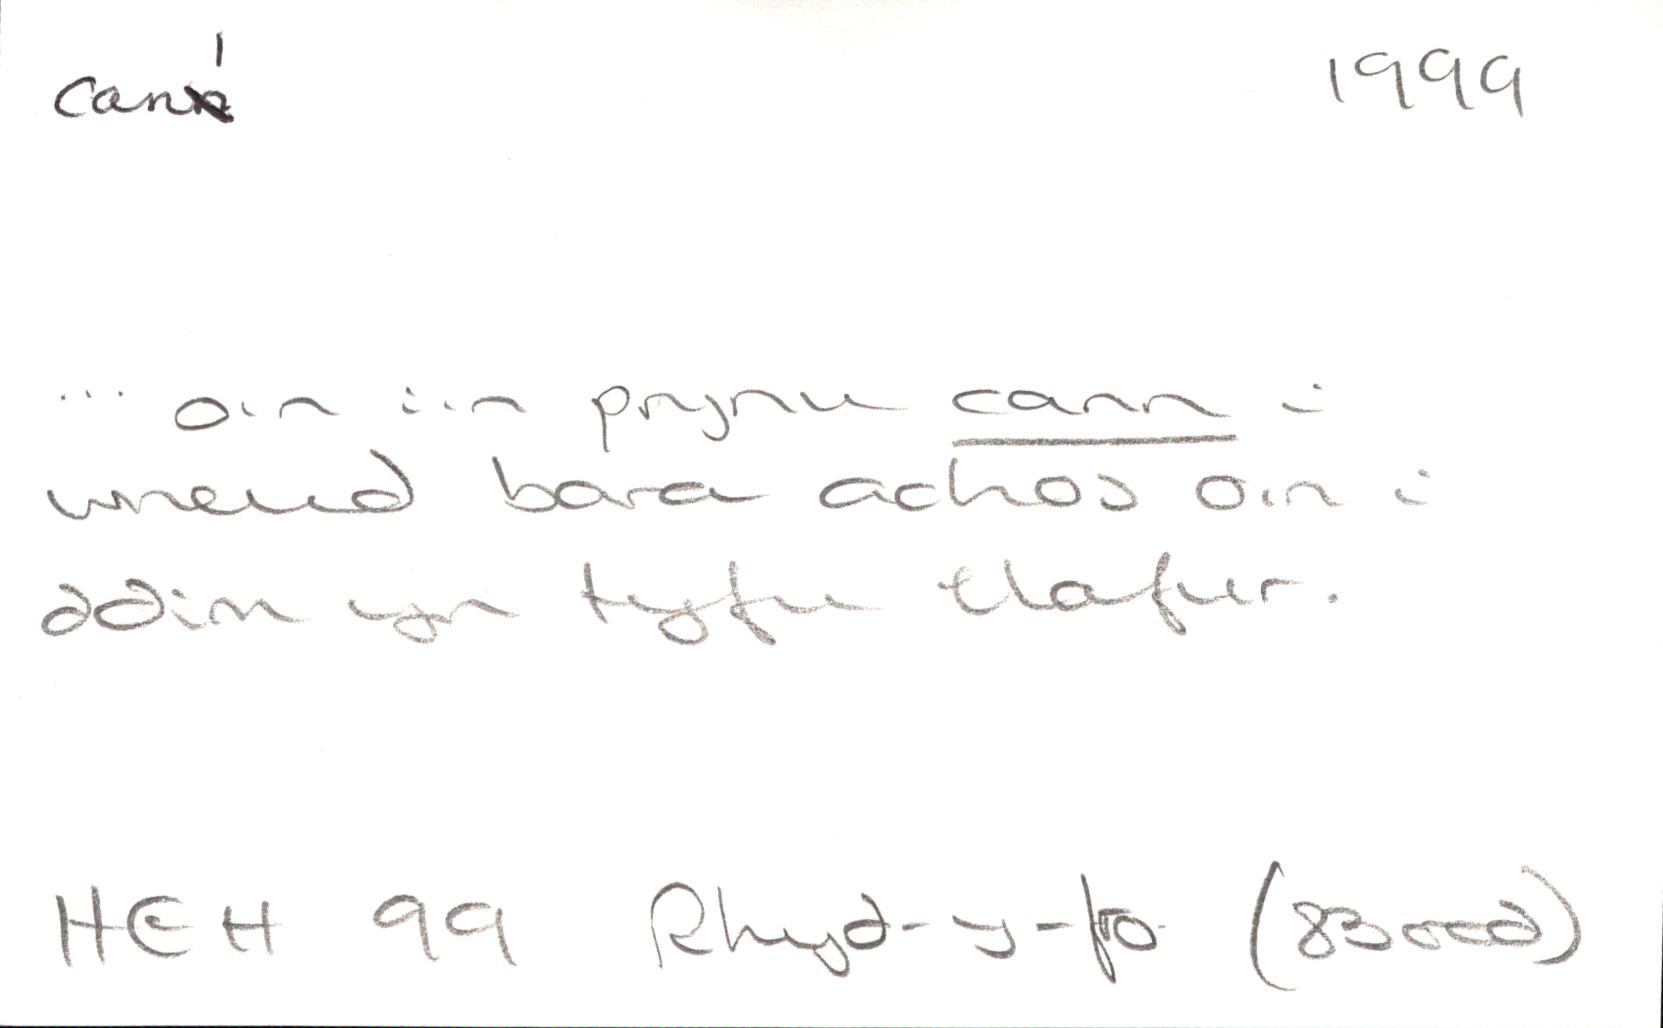 can¹ 1999
... o.n i i.n prynu cann i
wneud bara achos o.n i
ddim yn tyfu llafur.
HEH 99 Rhyd-y-fro (83 oed)